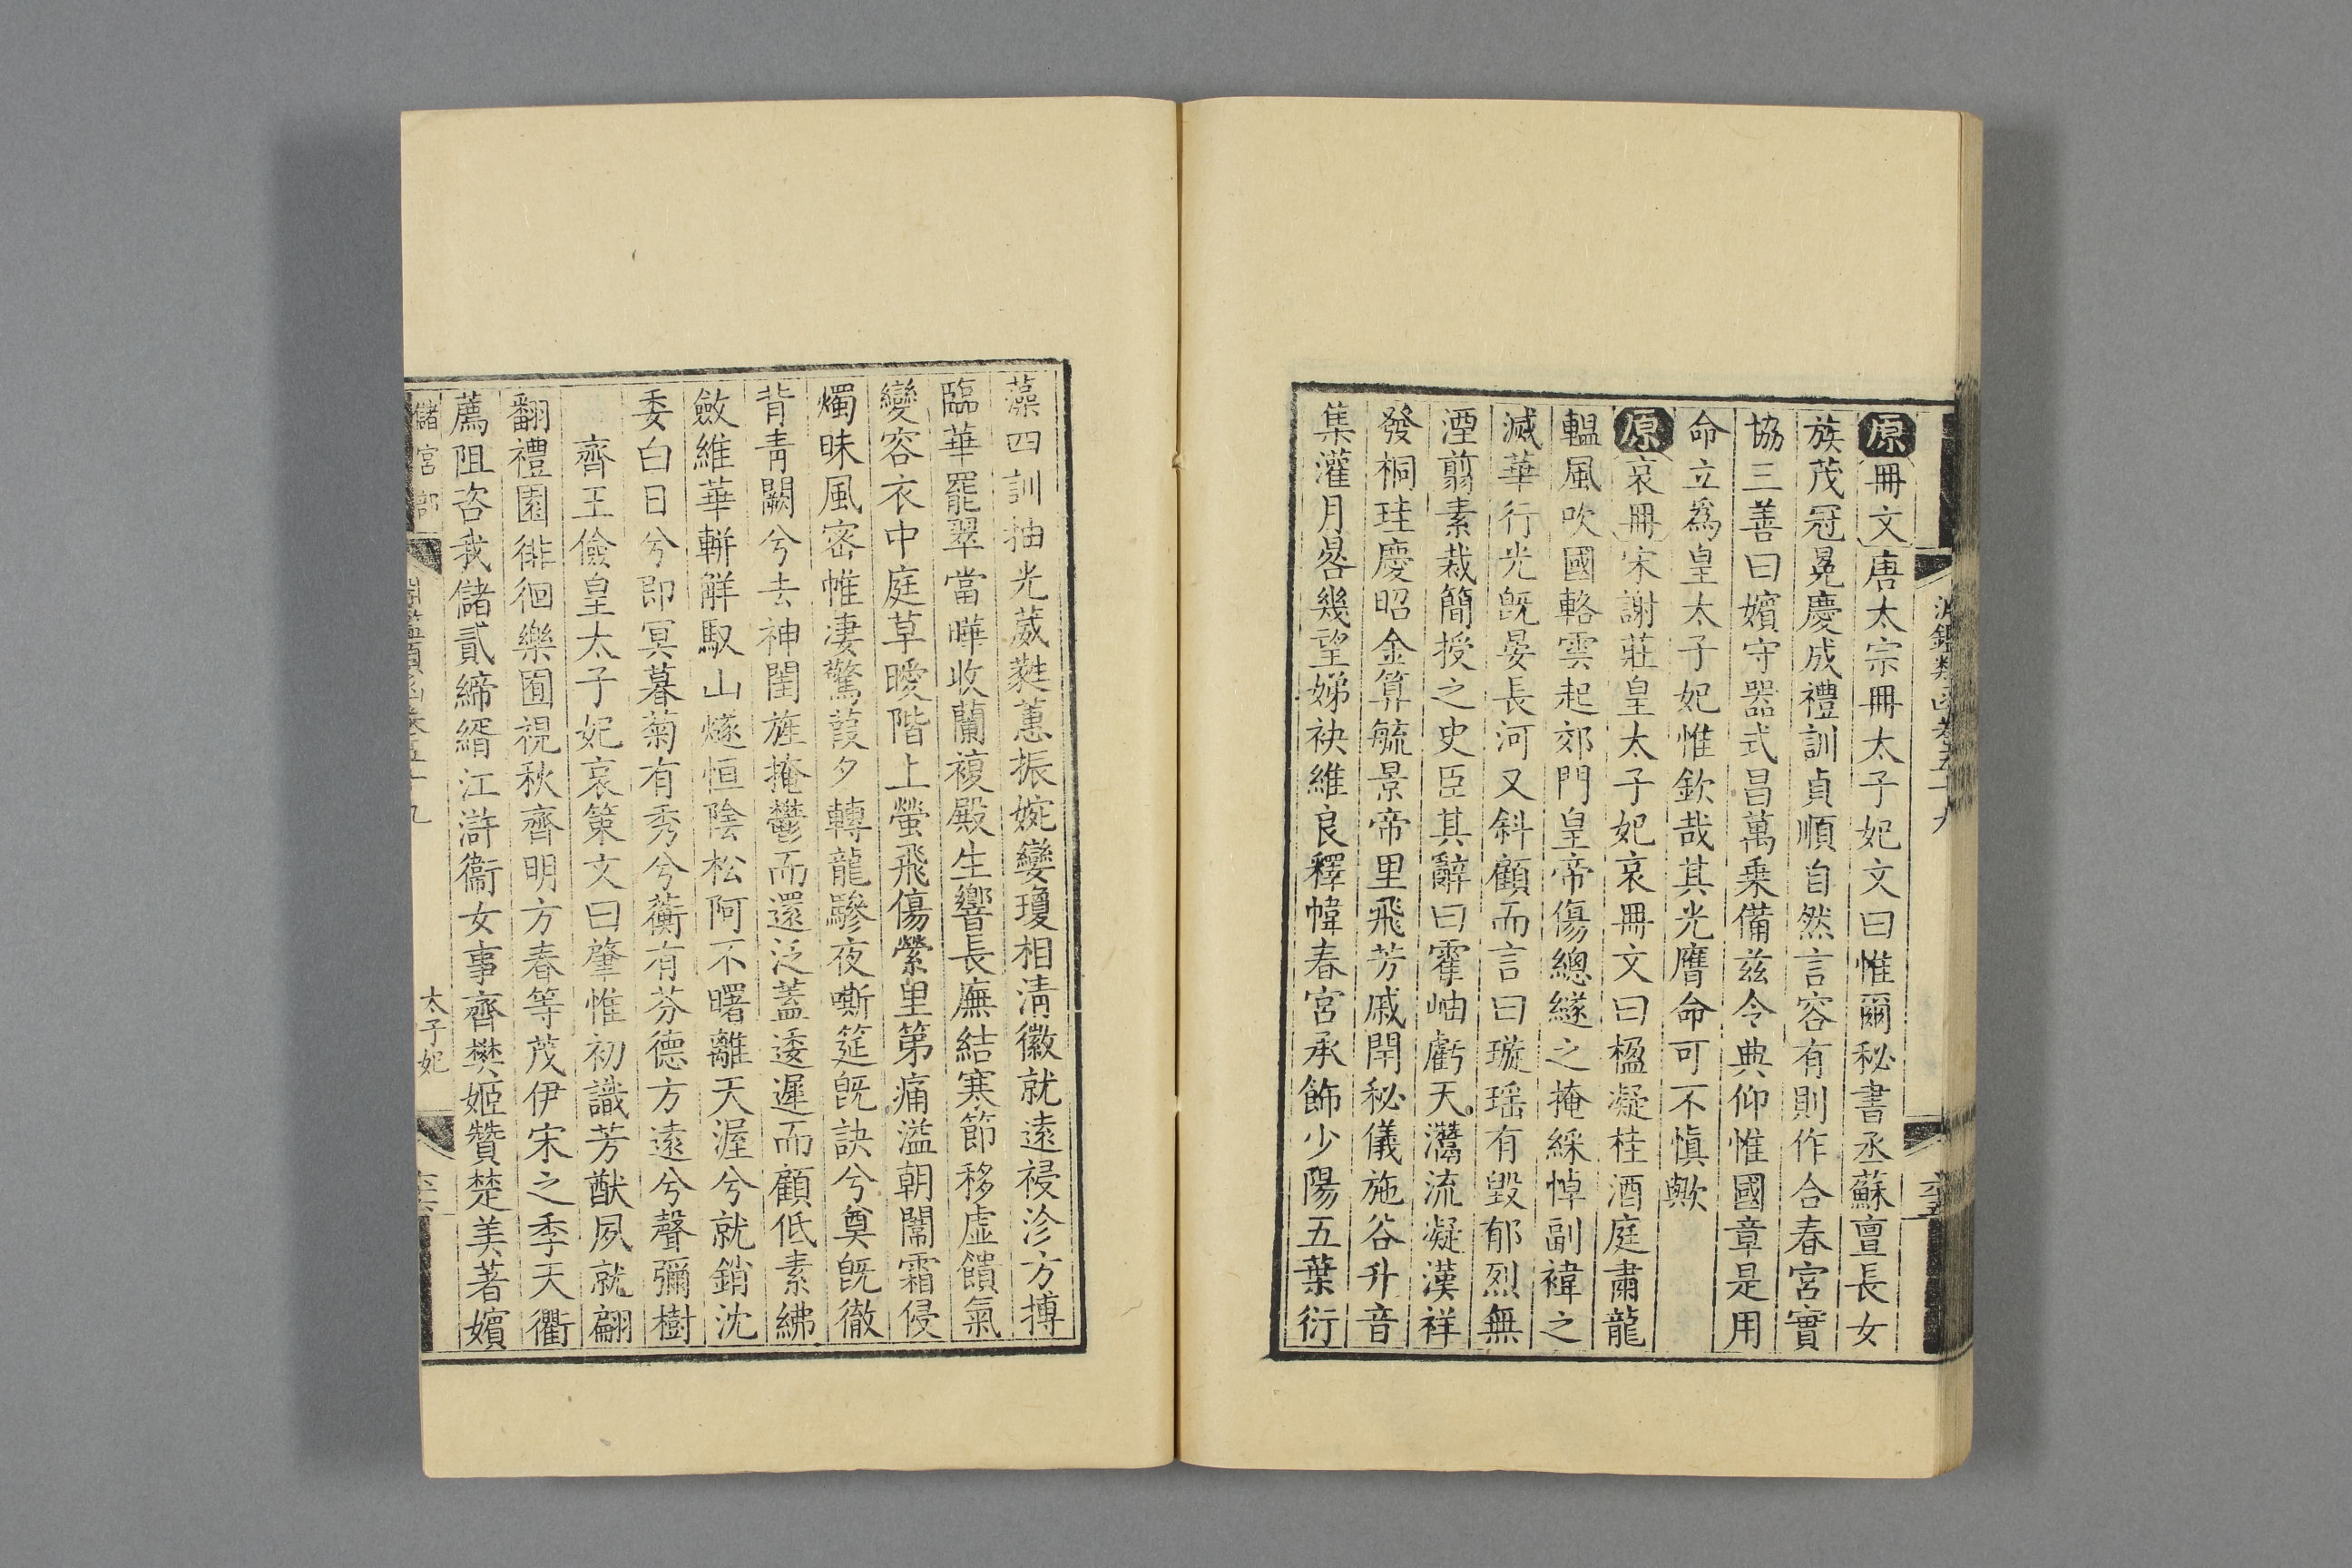 淵鑑類函卷五十九
原冊文唐太宗冊太子妃文曰惟爾秘書丞蘇亶長女
族茂冠冕慶成禮訓貞順自然言容有則作合春宮實
協三善曰嬪守器式昌萬乗備兹令典仰惟國章是用
命立爲皇太子妃惟欽哉其光膺命可不愼歟
原哀冊宋謝莊皇太子妃哀冊文曰楹凝桂酒庭肅龍
輼風吹國輅雲起郊門皇帝傷總繸之掩綵悼副褘之
滅華行光旣晏長河又斜顧而言曰璇瑤有毀郁烈無
湮翦素裁簡授之史臣其辭曰霍岫虧天灊流凝漢祥
發桐珪慶昭金筭毓景帝里飛芳戚閈秘儀施谷升音
集灌月晷幾望娣袂維良釋幃春宮承飾少陽五葉衍
藻四訓抽光葳蕤蕙振婉孌瓊相淸徽就遠祲沴方摶
臨華罷翠當嘩收蘭複殿生響長廡結寒節移虛饋氣
變容衣中庭草曖階上螢飛傷縈里第痛溢朝闈霜侵
燭昧風密帷凄驚葭夕轉龍驂夜嘶筵旣訣兮奠旣徹
背靑闕兮去神閨旌掩鬱而還泛蓋逶遲而顧低素紼
斂維華輧解馭山燧恒陰松阿不曙離天渥兮就銷沈
委白日兮即冥暮菊有秀兮蘅有芬德方遠兮聲彌樹
齊王儉皇太子妃哀策文曰肇惟初識芳猷夙就翩
翻禮園徘徊樂囿視秋齊明方春等茂伊宋之季天衢
薦阻咨我儲貳締緡江滸衞女事齊樊姬贊楚美著嬪
儲宮部 淵鑑類函卷五十九 太子妃